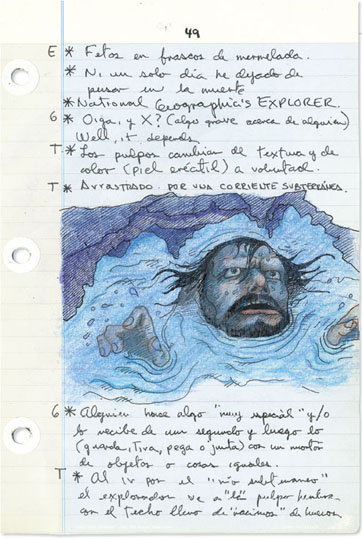 49
E * Fetos en frascos de mermelada.
* Ni un solo día he dejado de
pensar en la muerte
* National Geographic's EXPLORER.
G * Oiga, y X? (algo grave acerca de alguien)
Well, it depends
T * Los pulpos cambian de textura y de
color (piel eréctil) a voluntad.
T * ARRASTRADO POR UNA CORRIENTE SUBTERRÁNEA.
G * Alguien hace algo "muy especial" y/o
lo recibe de un segundo y luego lo
(guarda, tira, pega o junta) con un montón
de objetos o cosas iguales.
T * Al ir por el "río subterraneo"
el explorador ve a "la" pulpo hembra
con el techo lleno de "racimos" de huevos